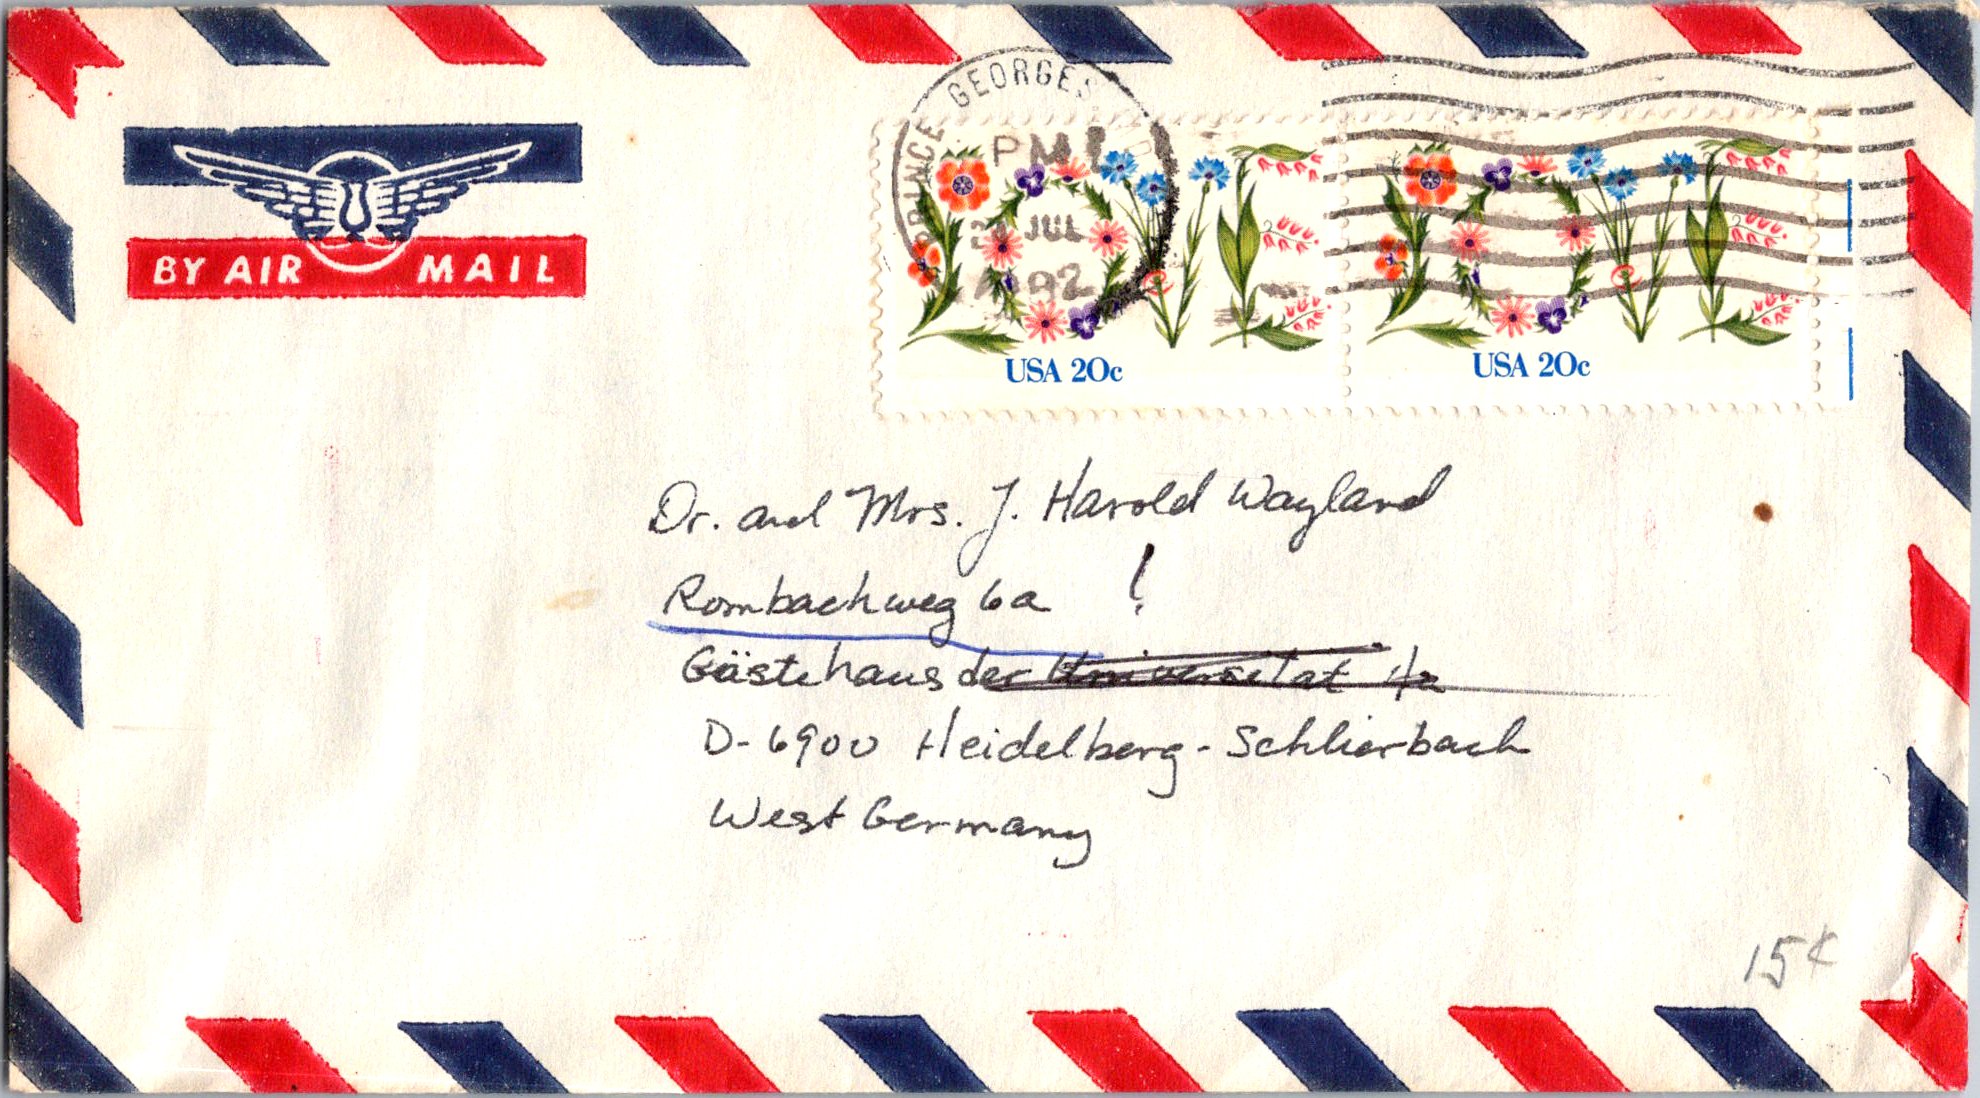 PRINCE GEORGES
PM
JUL
BY AIR MAIL
LOVE
USA 20c
LOVE
USA 20c
Dr. and Mrs. J. Harold Wayland
Rombachweg 6a !
Gästehaus der Universitat
D-6900 Heidelberg-Schlierbach
West Germany
15¢